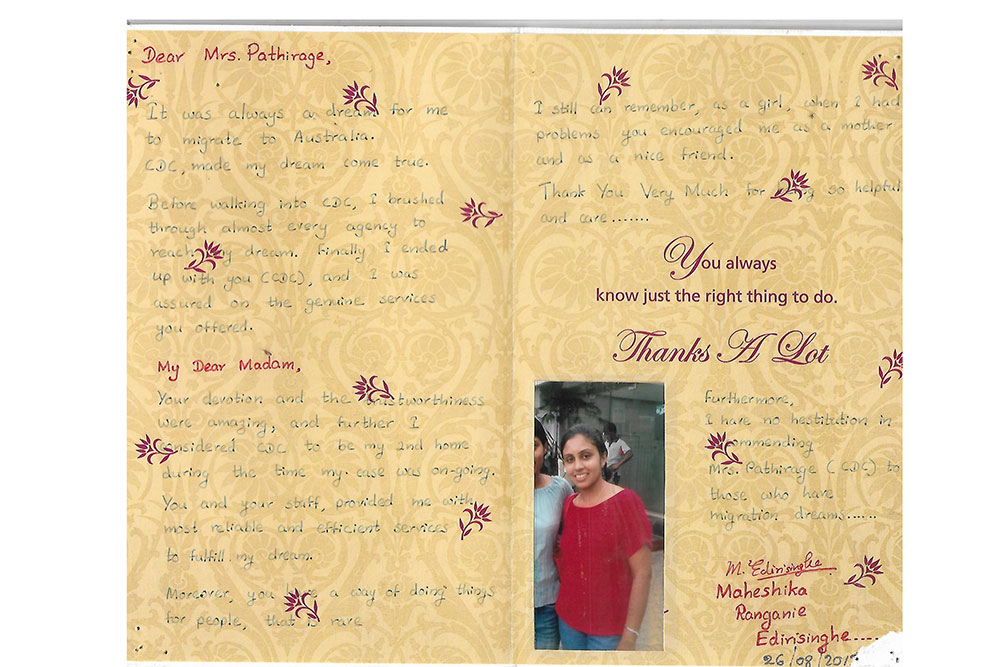 Dear Mrs. Pathirage,
It was always a dream for me
to migrate to Australia.
CDC, made my dream come true.
Before walking into CDC, I brushed
through almost every agency to
reach my dream. Finally I ended
up with you (CDC), and I was
assured on the genuine services
you offered.
My Dear Madam,
Your devotion and the trustworthiness
were amazing, and further I
considered CDC to be my 2nd home
during the time my case was on-going.
You and your staff, provided me with
most reliable and efficient services
to fulfill my dream.
Moreover, you have a way of doing things
for people, that is rare
I still can remember, as a girl, when I had
problems you encouraged me as a mother
and as a nice friend.
Thank You Very Much for being so helpful
and care.......
You always
know just the right thing to do.
Thanks A Lot
Furthermore,
I have no hestitution in
recommending
Mrs. Pathirage (CDC) to
those who have
migration dreams......
M. Edirisinghe
Maheshika
Ranganie
Edirisinghe.....
26/08/201